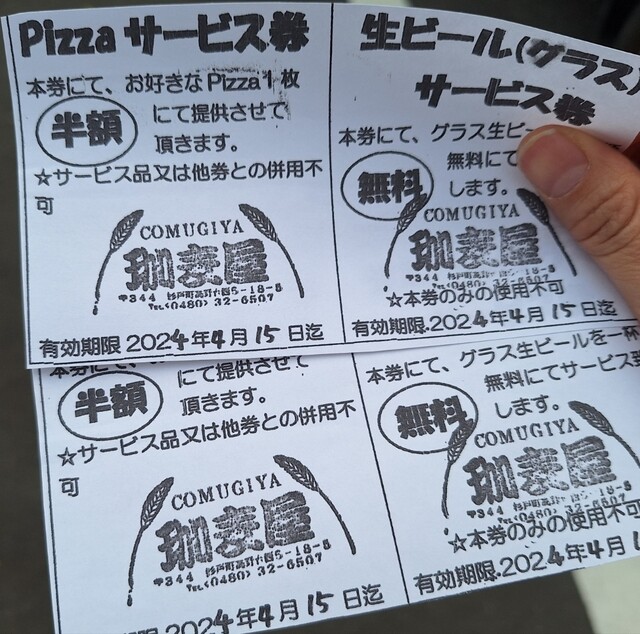 Pizza サービス券
本券にて、お好きなPizza1枚
半額
にて提供させて
頂きます。
☆サービス品又は他券との併用不
可
COMUGIYA
珈麦屋
〒344 杉戸町高野台西5-18-5
TEL(0480) 32-6507
有効期限 2024年4月15日迄
生ビール(グラス)
サービス券
本券にて、グラス生ビー
無料
無料にて
します。
COMUGIYA
珈麦屋
〒344 杉戸町高野台西5-18-5
TEL(0480) 32-6507
☆本券のみの使用不可
有効期限.2024年4月15日迄
本券にて、
半額
にて提供させて
頂きます。
☆サービス品又は他券との併用不
可
COMUGIYA
珈麦屋
〒344 杉戸町高野台西5-18-5
TEL(0480) 32-6507
有効期限 2024年4月15日迄
本券にて、グラス生ビールを一杯
無料
無料にてサービス
します。
COMUGIYA
珈麦屋
〒344 杉戸町高野台西5-18-5
TEL(0480) 32-6507
☆本券のみの使用不可
有効期限.2024年4月1